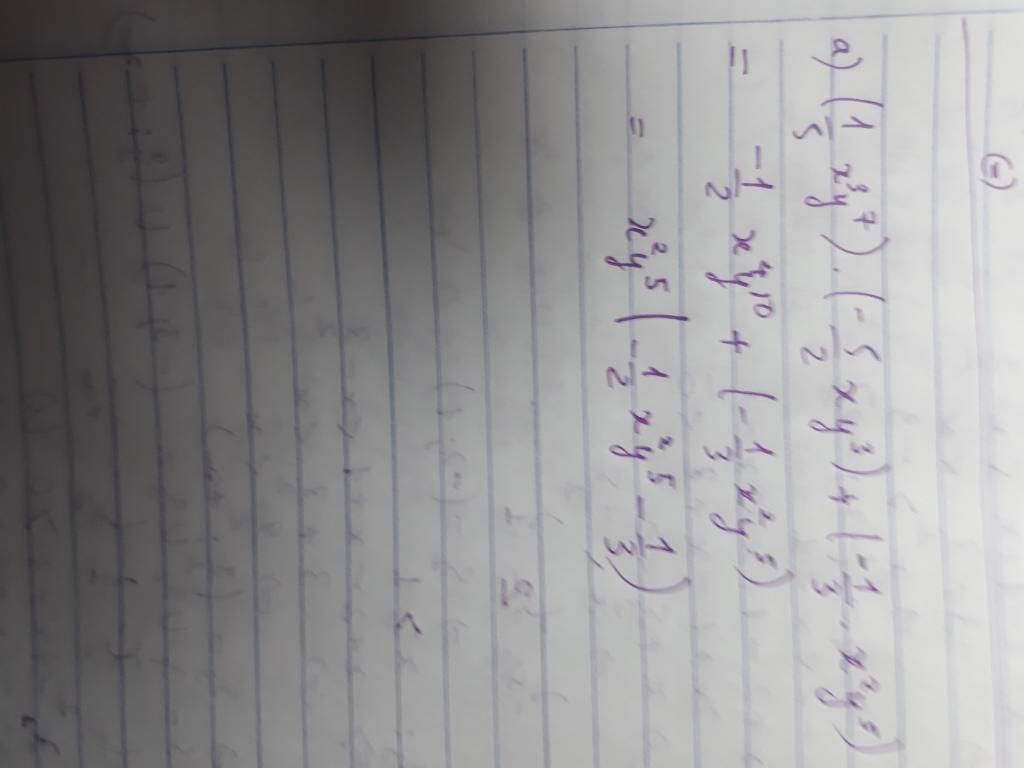 (=)
a) (1/5 x³y⁷) . (-5/2 xy³) + (-1/3 . x²y⁵)
= -1/2 x⁴y¹⁰ + (-1/3 x²y⁵)
= x²y⁵ (-1/2 x²y⁵ - 1/3)